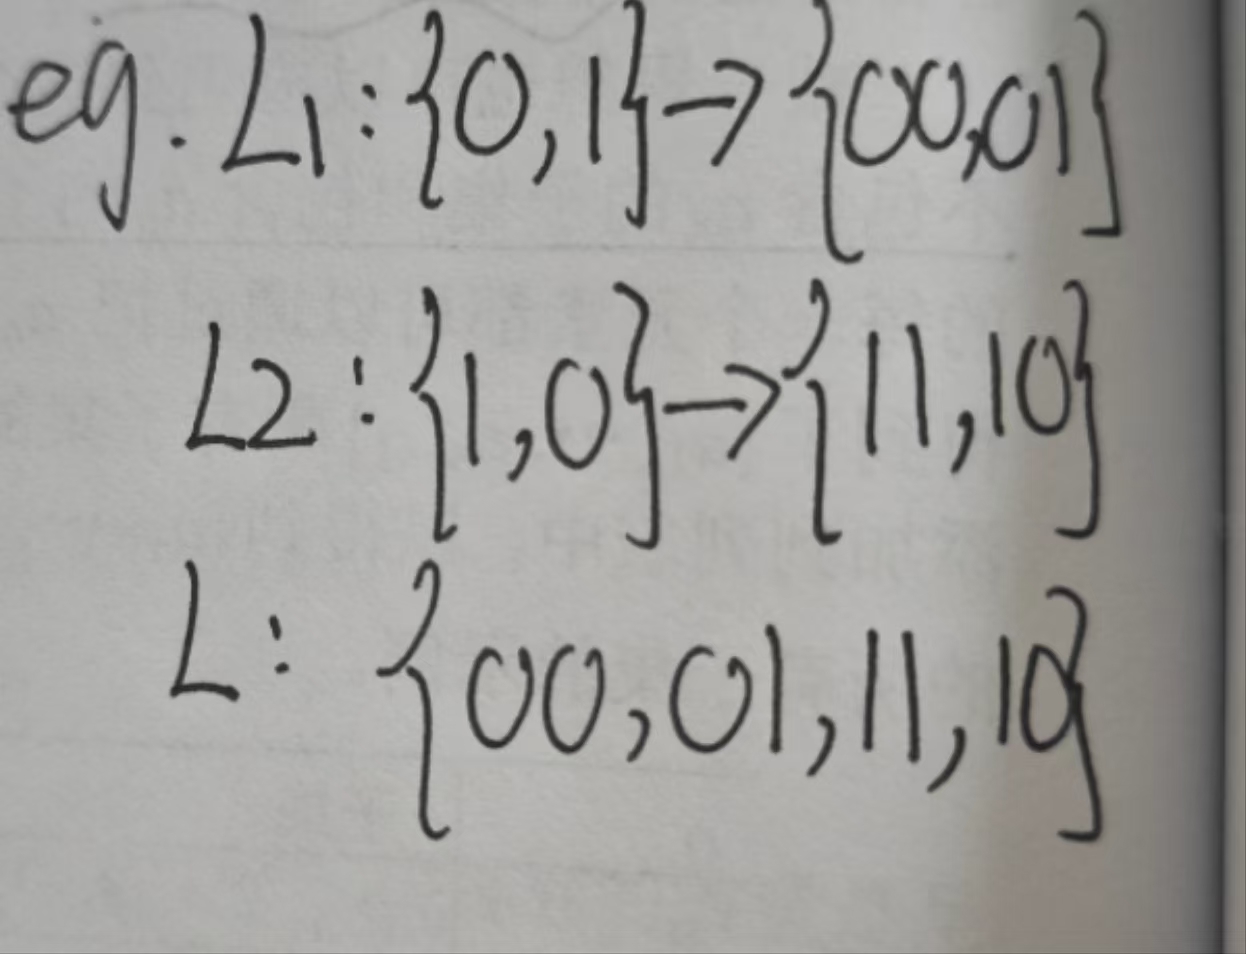 eg. L1:{0,1}→{00,01}
L2:{1,0}→{11,10}
L: {00,01,11,10}